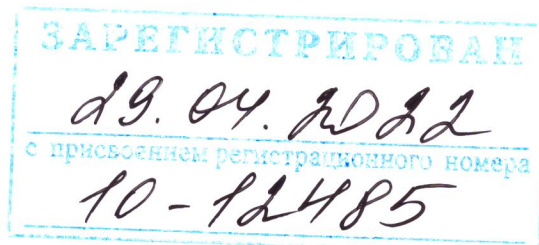 ЗАРЕГИСТРИРОВАН
29.04.2022
с присвоением регистрационного номера
10-12485